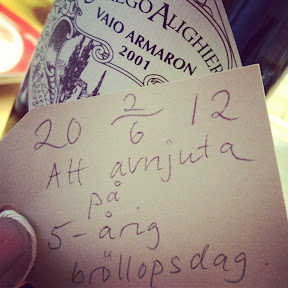 SEREGO ALIGHIERI
VAIO ARMARON
2001
20 2/6 12
Att avnjuta
på
5-årig
bröllopsdag.